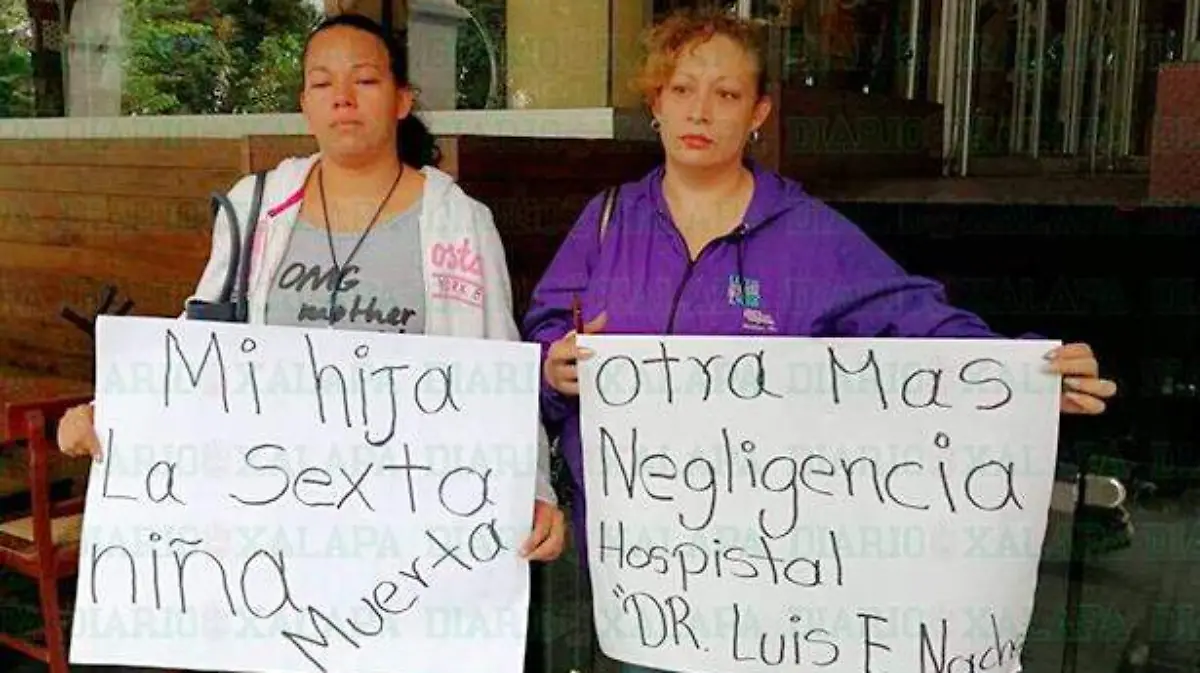 OMG
mother
osta
YORK
Mi hija
La Sexta
niña
Muerta
otra Mas
Negligencia
Hospistal
"DR. Luis F Nach
DIARIO XALAPA